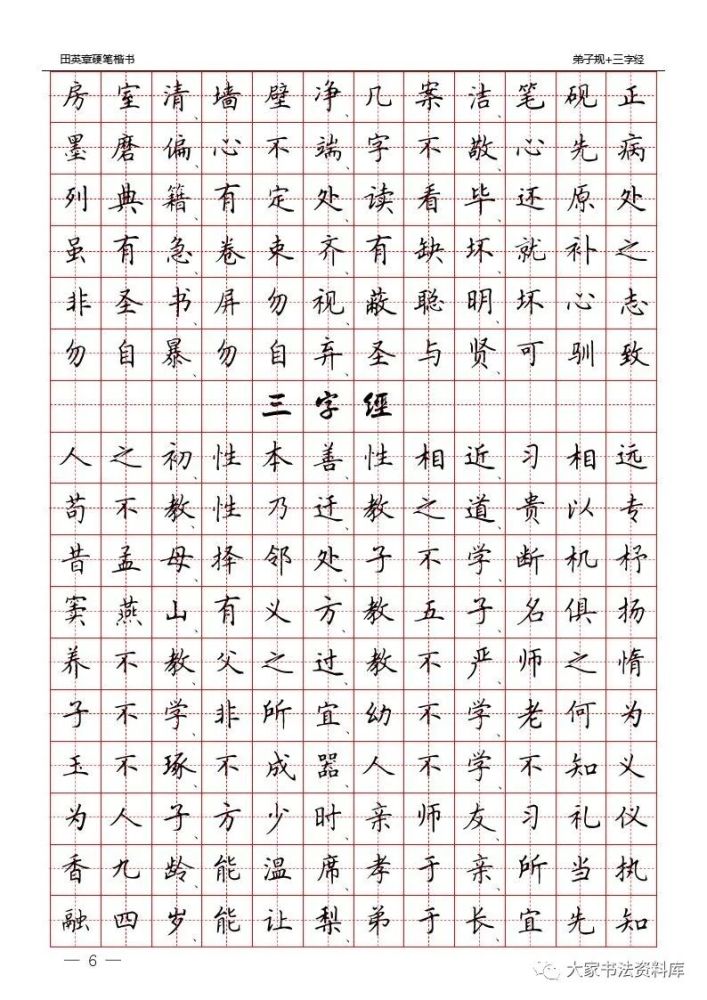 田英章硬笔楷书 弟子规+三字经
房室清、墙壁净、几案洁、笔砚正
墨磨偏、心不端、字不敬、心先病
列典籍、有定处、读看毕、还原处
虽有急、卷束齐、有缺坏、就补之
非圣书、屏勿视、蔽聪明、坏心志
勿自暴、勿自弃、圣与贤、可驯致
三字經
人之初、性本善、性相近、习相远
苟不教、性乃迁、教之道、贵以专
昔孟母、择邻处、子不学、断机杼
窦燕山、有义方、教五子、名俱扬
养不教、父之过、教不严、师之惰
子不学、非所宜、幼不学、老何为
玉不琢、不成器、人不学、不知义
为人子、方少时、亲师友、习礼仪
香九龄、能温席、孝于亲、所当执
融四岁、能让梨、弟于长、宜先知
— 6 —
大家书法资料库